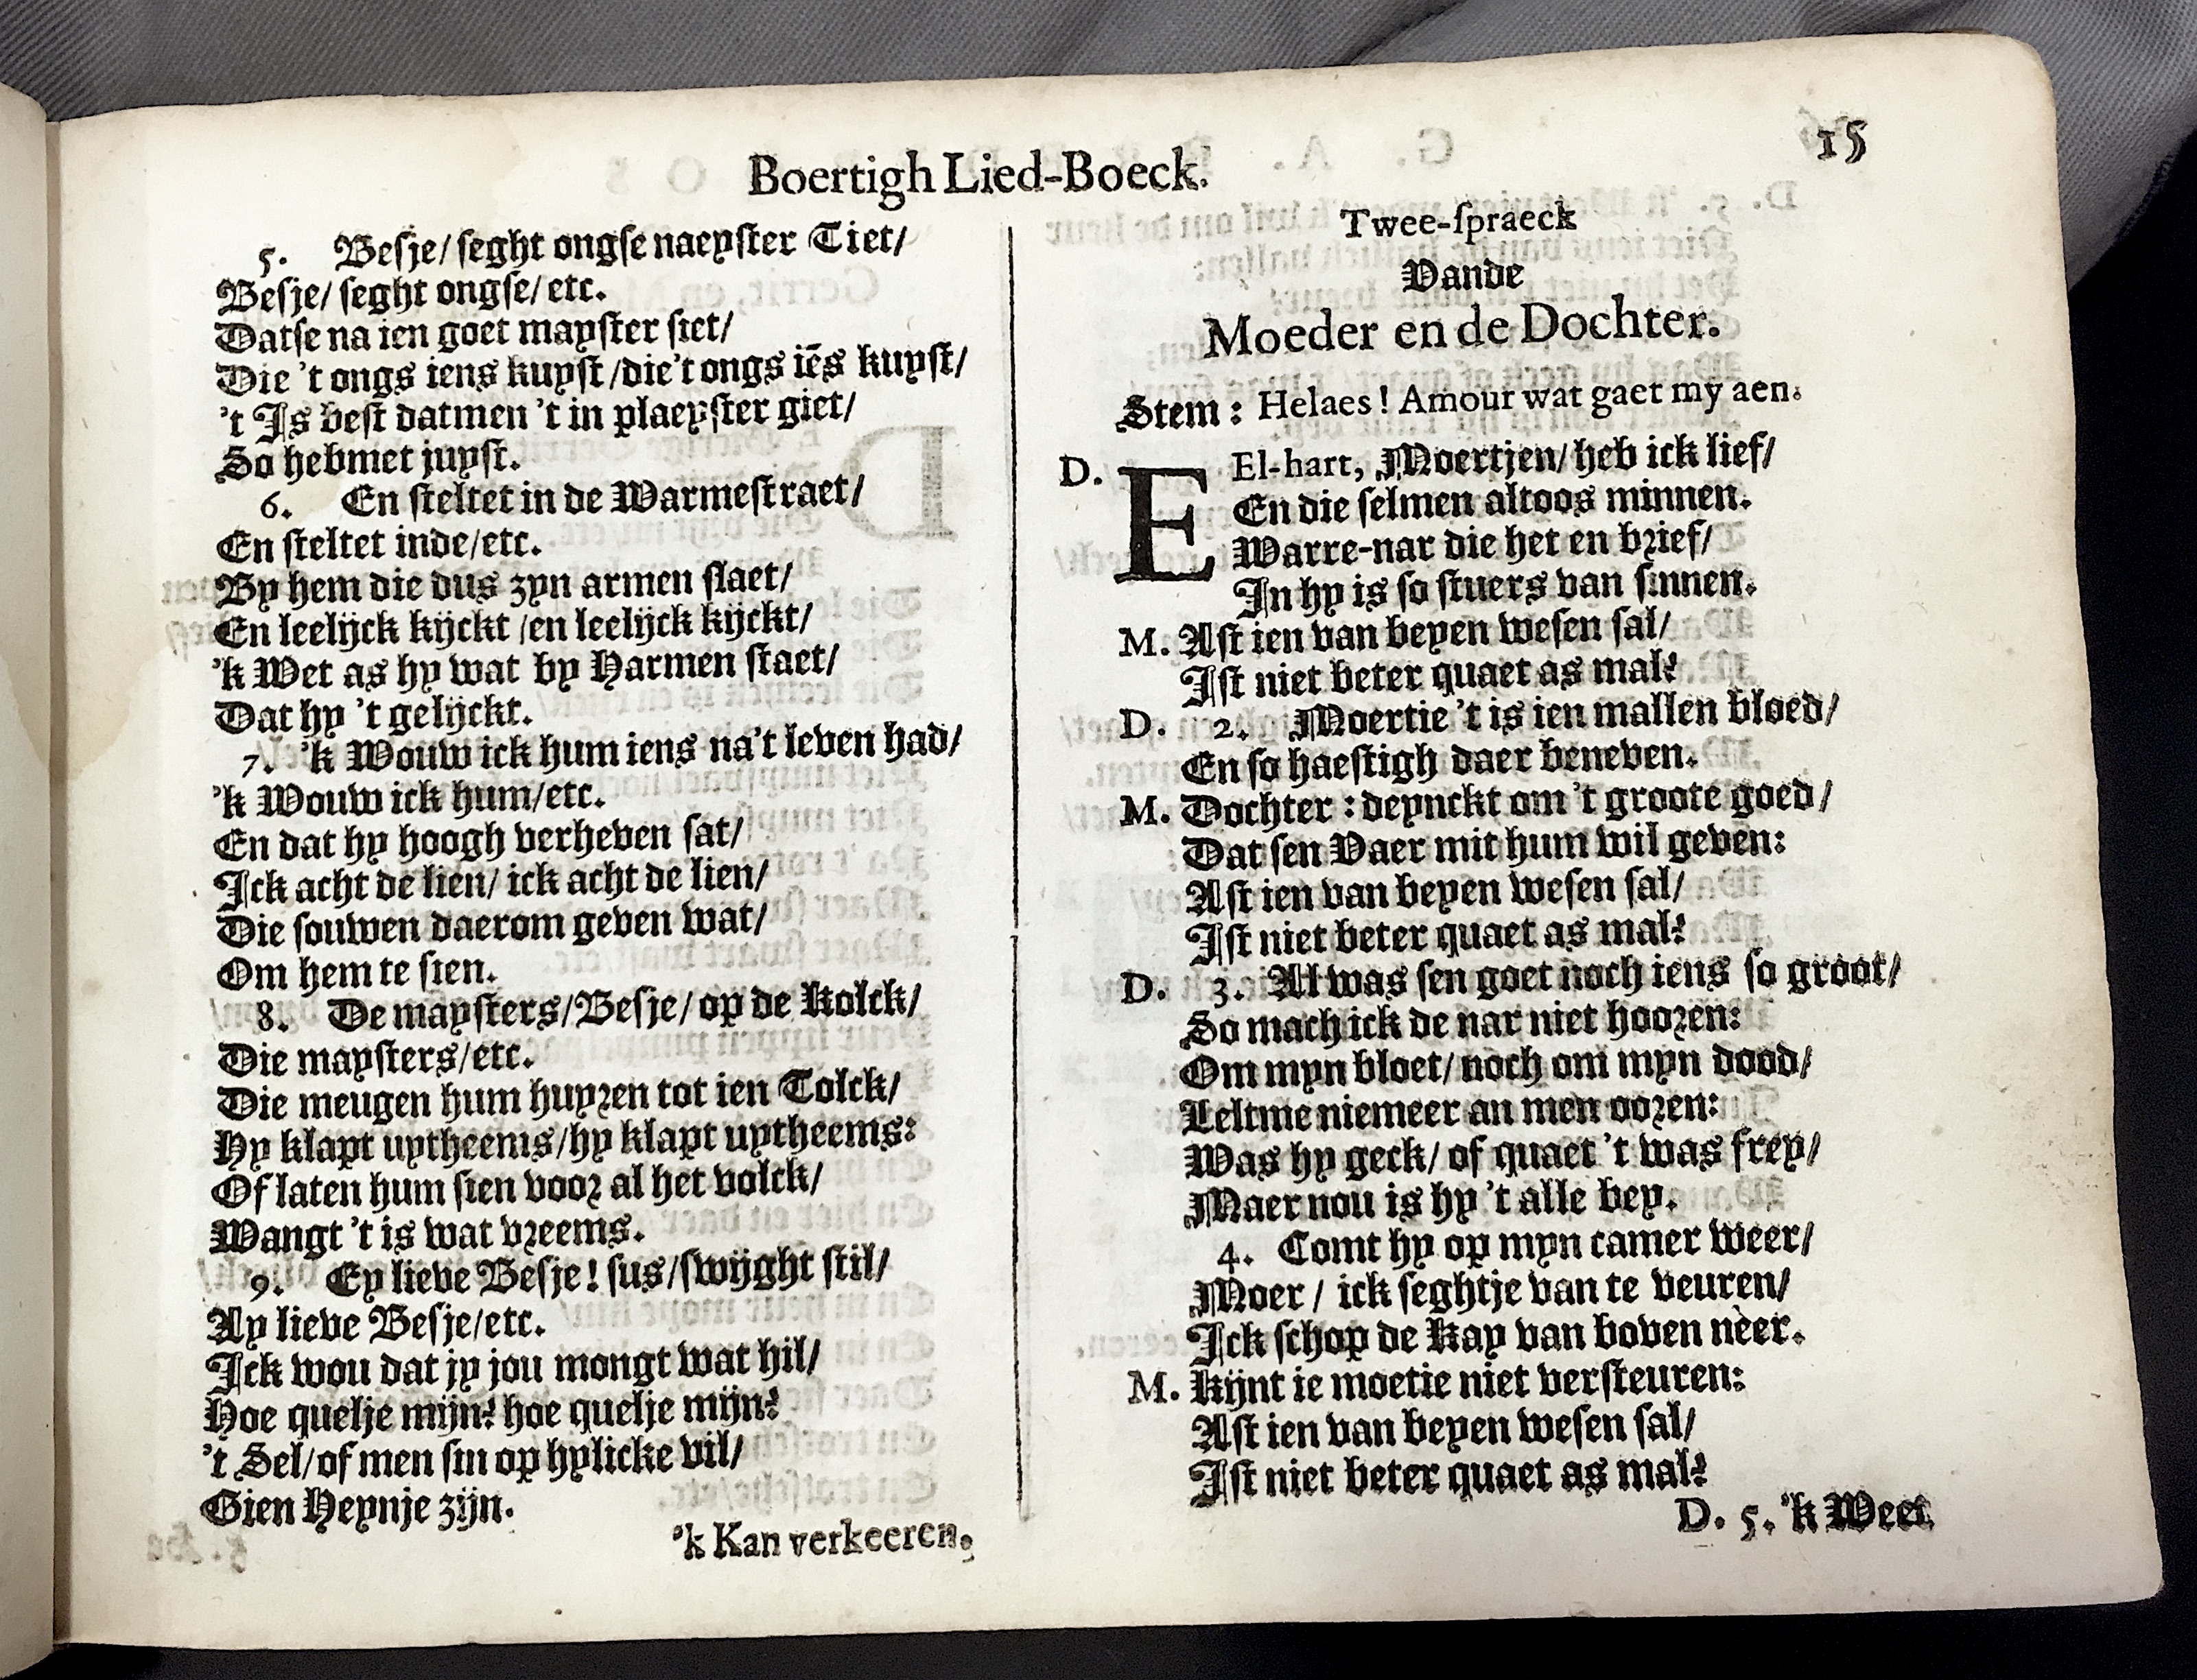 Boertigh Lied-Boeck.
15
5. Besje/ seght ongse naeyster Tiet/
Besje/ seght ongse/etc.
Datse na ien goet mayster siet/
Die 't ongs iens kuyst/die't ongs iẽs kuyst/
't Is best datmen 't in plaeyster giet/
So hebmet juyst.
6. En steltet in de Warmestraet/
En steltet inde/etc.
By hem die dus zyn armen slaet/
En leelijck kijckt/en leelijck kijckt/
'k Wet as hy wat by Harmen staet/
Dat hy 't gelijckt.
7. 'k Wouw ick hum iens na't leven had/
'k Wouw ick hum/etc.
En dat hy hoogh verheven sat/
Ick acht de lien/ ick acht de lien/
Die souwen daerom geven wat/
Om hem te sien.
8. De maysters/Besje/op de Kolck/
Die maysters/etc.
Die meugen hum huyren tot ien Tolck/
Hy klapt uytheems/hy klapt uytheems:
Of laten hum sien voor al het volck/
Wangt 't is wat vreems.
9. Ey lieve Besje! sus/swijght stil/
Ay lieve Besje/etc.
Ick wou dat jy jou mongt wat hil/
Hoe quelje mijn? hoe quelje mijn?
't Sel/of men sin op hylicke vil/
Gien Heynje zijn.
'k Kan verkeeren.
Twee-spraeck
Vande
Moeder en de Dochter.
Stem: Helaes! Amour wat gaet my aen.
D. EEl-hart, Moertjen/ heb ick lief/
En die selmen altoos minnen.
Warre-nar die het en brief/
In hy is so stuers van sinnen.
M. Ast ien van beyen wesen sal/
Ist niet beter quaet as mal?
D. 2. Moertie 't is ien mallen bloed/
En so haestigh daer beneven.
M. Dochter: deynckt om 't groote goed/
Dat sen Vaer mit hum wil geven:
Ast ien van beyen wesen sal/
Ist niet beter quaet as mal?
D. 3. Al was sen goet noch iens so groot/
So mach ick de nar niet hooren:
Om myn bloet/ noch om myn dood/
Leltme niemeer an men ooren:
Was hy geck/ of quaet 't was frey/
Maer nou is hy 't alle bey.
4. Comt hy op myn camer weer/
Moer/ ick seghtje van te veuren/
Ick schop de Kay van boven nèer.
M. Kijnt ie moetie niet versteuren:
Ast ien van beyen wesen sal/
Ist niet beter quaet as mal?
D. 5. 'k Weet